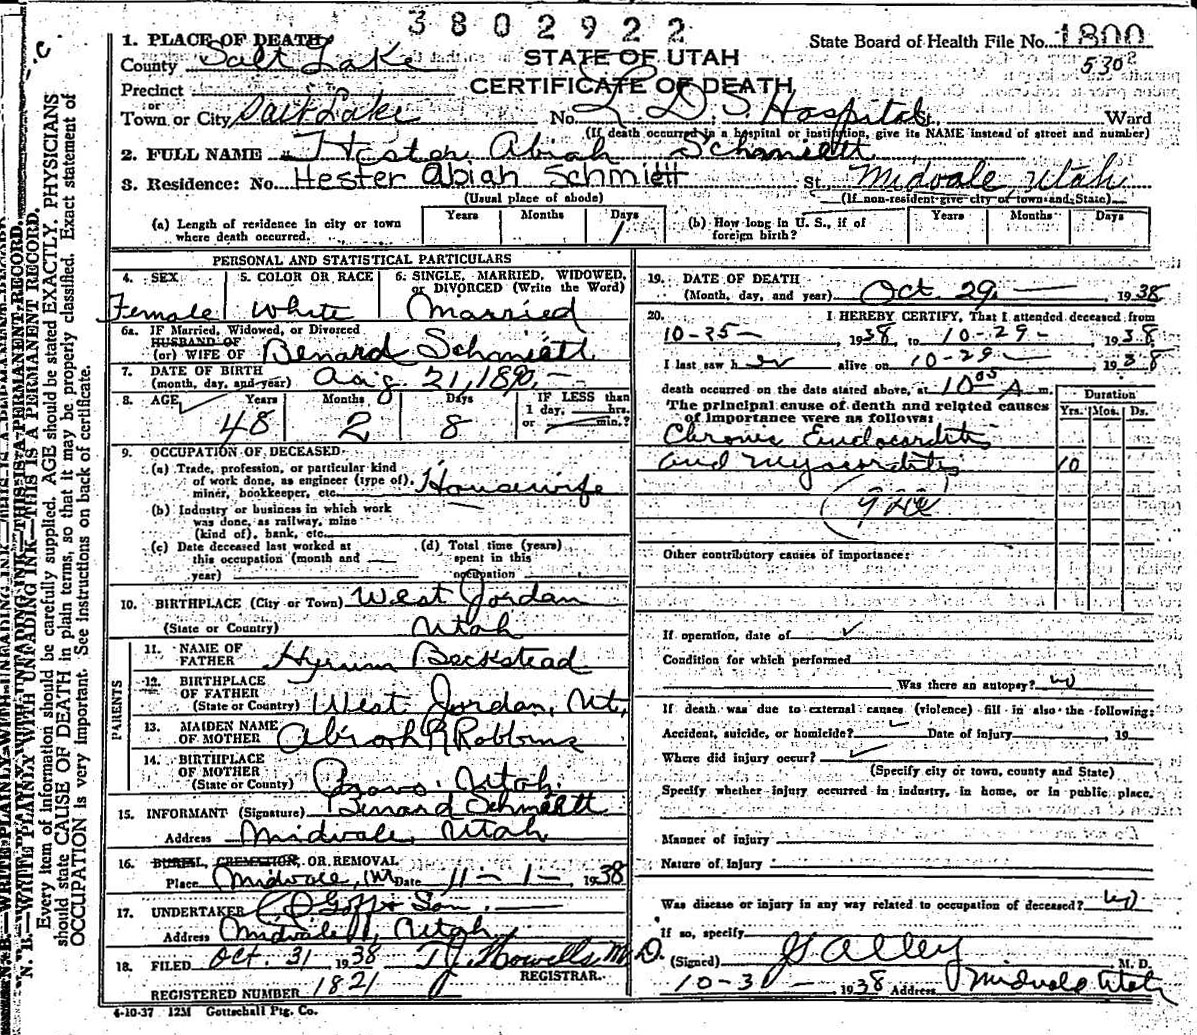 3802922
1. PLACE OF DEATH
STATE OF UTAH
State Board of Health File No. 1800
County Salt Lake
CERTIFICATE OF DEATH
530
Precinct
or
Town or City Salt Lake No. L. D. S. Hospital St., Ward
(If death occurred in a hospital or institution, give its NAME instead of street and number)
2. FULL NAME Hester Abiah Schmiett
3. Residence: No. Hester Abiah Schmiett St. Midvale, Utah
(Usual place of abode) (If non-resident give city or town and State)
(a) Length of residence in city or town where death occurred. Years Months Days 1
(b) How long in U. S., if of foreign birth? Years Months Days
PERSONAL AND STATISTICAL PARTICULARS
4. SEX 5. COLOR OR RACE 6. SINGLE, MARRIED, WIDOWED, or DIVORCED (Write the Word)
Female White Married
6a. IF Married, Widowed, or Divorced
HUSBAND OF
(or) WIFE OF Benard Schmiett
7. DATE OF BIRTH
(month, day, and year) Aug 21, 1890
8. AGE Years Months Days IF LESS than
1 day, hrs.
or min.?
48 2 8
9. OCCUPATION OF DECEASED
(a) Trade, profession, or particular kind
of work done, as engineer (type of),
miner, bookkeeper, etc. Housewife
(b) Industry or business in which work
was done, as railway, mine
(kind of), bank, etc.
(c) Date deceased last worked at
this occupation (month and
year)
(d) Total time (years)
spent in this
occupation
10. BIRTHPLACE (City or Town) West Jordan
(State or Country) Utah
PARENTS
11. NAME OF
FATHER Hyrum Beckstead
12. BIRTHPLACE
OF FATHER
(State or Country) West Jordan, Ut,
13. MAIDEN NAME
OF MOTHER Abiah R Robbins
14. BIRTHPLACE
OF MOTHER
(State or County) Provo, Utah
15. INFORMANT (Signature) Benard Schmiett
Address Midvale, Utah
16. BURIAL, CREMATION, OR REMOVAL
Place Midvale, Ut Date 11-1- 1938
17. UNDERTAKER Goff & Son
Address Midvale, Utah
18. FILED Oct. 31 1938 Howells M.D.
REGISTRAR.
REGISTERED NUMBER 1821
4-10-37 12M Gottschall Ptg. Co.
19. DATE OF DEATH
(Month, day, and year) Oct. 29 1938
20. I HEREBY CERTIFY, That I attended deceased from
10-25- , 1938, to 10-29- , 1938
I last saw her alive on 10-29- , 1938
death occurred on the date stated above, at 10 05 A m.
The principal cause of death and related causes
of importance were as follows:
Duration
Yrs. Mos. Ds.
Chronic Endocarditis
and Myocarditis 10
Other contributory causes of importance:
If operation, date of
Condition for which performed
Was there an autopsy? no
If death was due to external causes (violence) fill in also the following:
Accident, suicide, or homicide? Date of injury , 19
Where did injury occur?
(Specify city or town, county and State)
Specify whether injury occurred in industry, in home, or in public place.
Manner of injury
Nature of injury
Was disease or injury in any way related to occupation of deceased? no
If so, specify
(Signed) Alley M. D.
1938 Address Midvale Utah
N. B.—WRITE PLAINLY WITH UNFADING INK—THIS IS A PERMANENT RECORD.
Every item of information should be carefully supplied. AGE should be stated EXACTLY. PHYSICIANS
should state CAUSE OF DEATH in plain terms, so that it may be properly classified. Exact statement of
OCCUPATION is very important. See instructions on back of certificate.